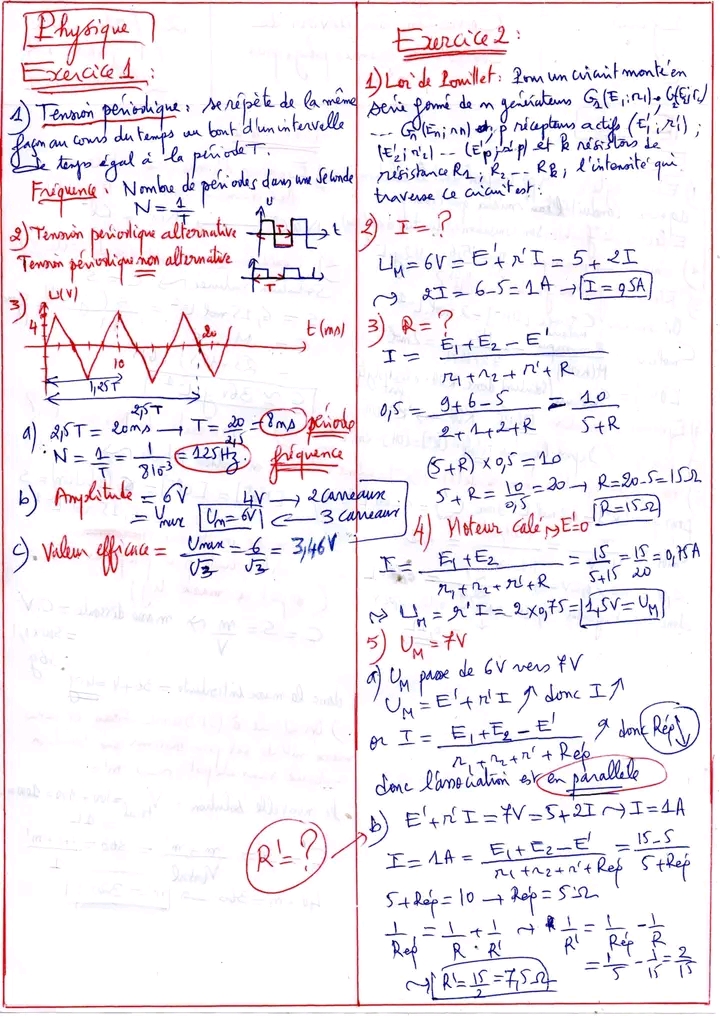 Physique
Exercice 1 :
1) Tension périodique : se répète de la même
façon au cours du temps au bout d'un intervelle
de temps égal à la période T.
Fréquence : Nombre de périodes dans une seconde
N = 1/T
2) Tension périodique alternative
U
T
t
Tension périodique non alternative
T
3) U(V)
4
10
20
t(ms)
1,25T
2,5T
a) 2,5T = 20ms → T = 20/2,5 = 8ms période
N = 1/T = 1/8 10⁻³ = 125Hz fréquence
b) Amplitude = 6V
4V → 2 carreaux
= Umax Um = 6V ← 3 carreaux
c) Valeur efficace = Umax/√3 = 6/√3 = 3,46V
Exercice 2 :
1) Loi de Pouillet : Pour un circuit monté en
série formé de n générateurs G1(E1; r1),
... Gn(En; rn) p récepteurs actifs (E'1; r'1) ;
(E'2; r'2) ... (E'p; r'p) et k résistors de
résistance R1; R2 ... Rk, l'intensité qui
traverse ce circuit est :
2) I = ?
UM = 6V = E' + r'I = 5 + 2I
⤳ 2I = 6-5 = 1A → I = 0,5A
3) R = ?
I = E1 + E2 - E' / r1 + r2 + r' + R
0,5 = 9+6-5 / 2+1+2+R = 10 / 5+R
(5+R) x 0,5 = 10
5+R = 10/0,5 = 20 → R = 20-5 = 15Ω
R = 15Ω
4) Moteur calé ⤳ E'=0
I = E1 + E2 / r1 + r2 + r' + R = 15/5+15 = 15/20 = 0,75A
⤳ UM = r'I = 2x0,75 = 1,5V = UM
5) UM = 7V
a) UM passe de 6V vers 7V
UM = E' + r'I ↗ donc I ↗
or I = E1 + E2 - E' / r1 + r2 + r' + Rép ↗ donc Rép ↓
donc l'association est en parallèle
R' = ?
b) E' + r'I = 7V = 5+2I ⤳ I = 1A
I = 1A = E1 + E2 - E' / r1 + r2 + r' + Rép = 15-5 / 5+Rép
5+Rép = 10 → Rép = 5Ω
1/Rép = 1/R + 1/R' ⤳ 1/R' = 1/Rép - 1/R
= 1/5 - 1/15 = 2/15
⤳ R' = 15/2 = 7,5Ω